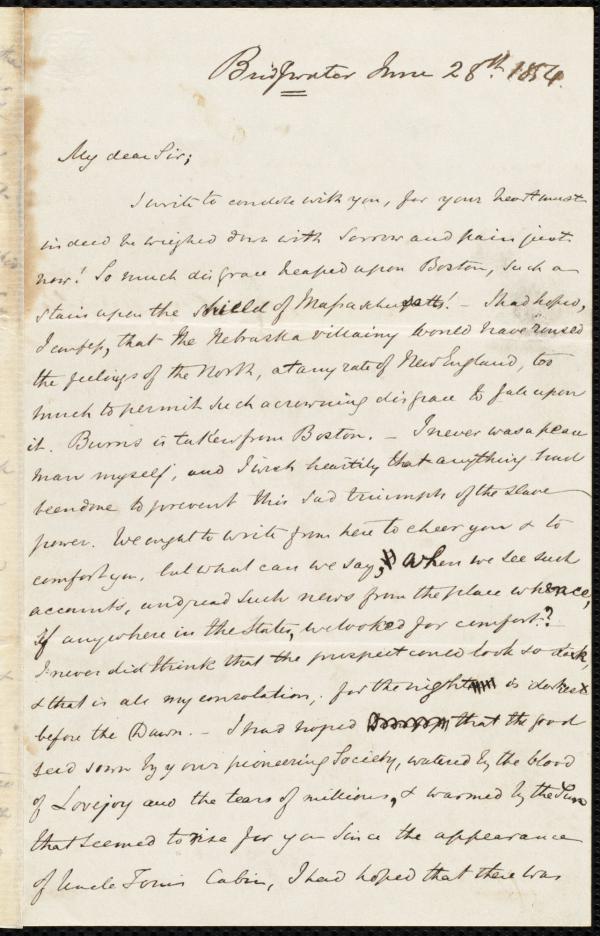 Bridgwater June 28th. 1854.
My dear Sir;
I write to condole with you, for your heart must
indeed be weighed down with sorrow and pain just
now! So much disgrace heaped upon Boston, such a
stain upon the shield of Massachusetts! – I had hoped,
I confess, that the Nebraska villainy would have roused
the feelings of the North, at any rate of New England, too
much to permit such a crowning disgrace to fall upon
it. Burns is taken from Boston. – I never was a peace
man myself, and I wish heartily that anything had
been done to prevent this sad triumph of the slave
power. We ought to write from here to cheer you & to
comfort you, but what can we say, when we see such
accounts, and read such news from the place whence,
if anywhere in the States, we looked for comfort?
I never did think that the prospect could look so dark,
& that is all my consolation; for the night is darkest
before the Dawn. – I had hoped that the good
seed sown by your pioneering Society, watered by the blood
of Lovejoy and the tears of millions, & warmed by the Sun
that seemed to rise for you since the appearance
of Uncle Tom's Cabin, I had hoped that there was